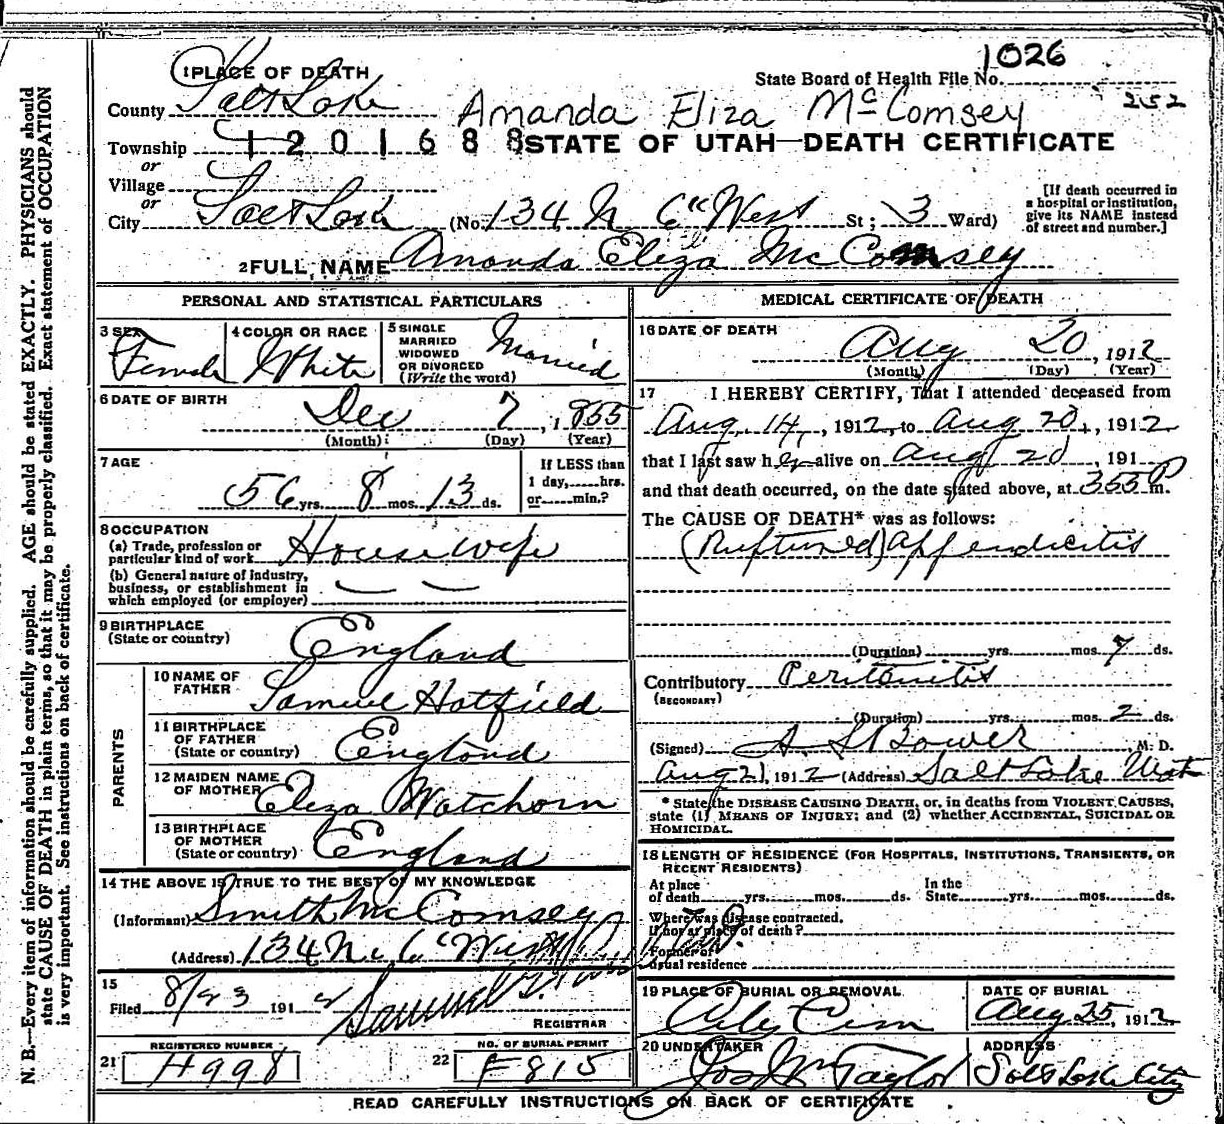 1026
1 PLACE OF DEATH
State Board of Health File No.
County Salt Lake
Amanda Eliza McComsey
252
Township
1201688
STATE OF UTAH—DEATH CERTIFICATE
or
Village
or
City Salt Lake (No. 134 N 6" West St; 3 Ward)
[If death occurred in
a hospital or institution,
give its NAME instead
of street and number.]
2 FULL NAME Amanda Eliza McComsey
PERSONAL AND STATISTICAL PARTICULARS
3 SEX
Female
4 COLOR OR RACE
White
5 SINGLE
MARRIED
WIDOWED
OR DIVORCED
(Write the word)
Married
6 DATE OF BIRTH
Dec 7, 1855
(Month) (Day) (Year)
7 AGE
56 yrs. 8 mos. 13 ds.
If LESS than
1 day,......hrs.
or......min.?
8 OCCUPATION
(a) Trade, profession or
particular kind of work Housewife
(b) General nature of industry,
business, or establishment in
which employed (or employer)
9 BIRTHPLACE
(State or country) England
PARENTS
10 NAME OF
FATHER Samuel Hatfield
11 BIRTHPLACE
OF FATHER
(State or country) England
12 MAIDEN NAME
OF MOTHER Eliza Watchorn
13 BIRTHPLACE
OF MOTHER
(State or country) England
14 THE ABOVE IS TRUE TO THE BEST OF MY KNOWLEDGE
(Informant) Smith McComsey
(Address) 134 N. 6" West
15
Filed 8/23 1912 Samuel
REGISTRAR
21 REGISTERED NUMBER
H998
22 NO. OF BURIAL PERMIT
F815
MEDICAL CERTIFICATE OF DEATH
16 DATE OF DEATH
Aug 20, 1912
(Month) (Day) (Year)
17 I HEREBY CERTIFY, That I attended deceased from
Aug. 14, 1912, to Aug 20, 1912
that I last saw her alive on Aug 20, 191
and that death occurred, on the date stated above, at 355 P m.
The CAUSE OF DEATH* was as follows:
(Ruptured) appendicitis
(Duration) yrs. mos. 7 ds.
Contributory Peritonitis
(SECONDARY)
(Duration) yrs. mos. 2 ds.
(Signed) A. S. Bower M. D.
Aug 21, 1912 (Address) Salt Lake Utah
* State the DISEASE CAUSING DEATH, or, in deaths from VIOLENT CAUSES,
state (1) MEANS OF INJURY; and (2) whether ACCIDENTAL, SUICIDAL OR
HOMICIDAL.
18 LENGTH OF RESIDENCE (FOR HOSPITALS, INSTITUTIONS, TRANSIENTS, OR
RECENT RESIDENTS)
At place
of death......yrs......mos......ds.
In the
State......yrs......mos......ds.
Where was disease contracted,
If not at place of death?
Former or
usual residence
19 PLACE OF BURIAL OR REMOVAL
City Cem
DATE OF BURIAL
Aug 25, 1912
20 UNDERTAKER
Jos Wm Taylor
ADDRESS
Salt Lake City
READ CAREFULLY INSTRUCTIONS ON BACK OF CERTIFICATE
N. B.—Every item of information should be carefully supplied. AGE should be stated EXACTLY. PHYSICIANS should
state CAUSE OF DEATH in plain terms, so that it may be properly classified. Exact statement of OCCUPATION
is very important. See instructions on back of certificate.